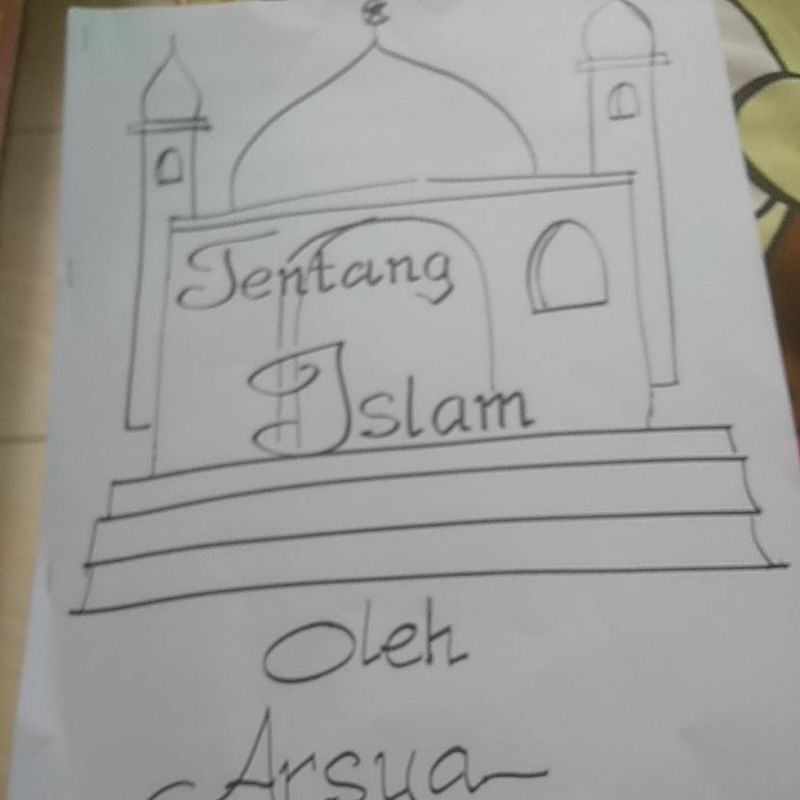 Tentang
Islam
Oleh
Arsya